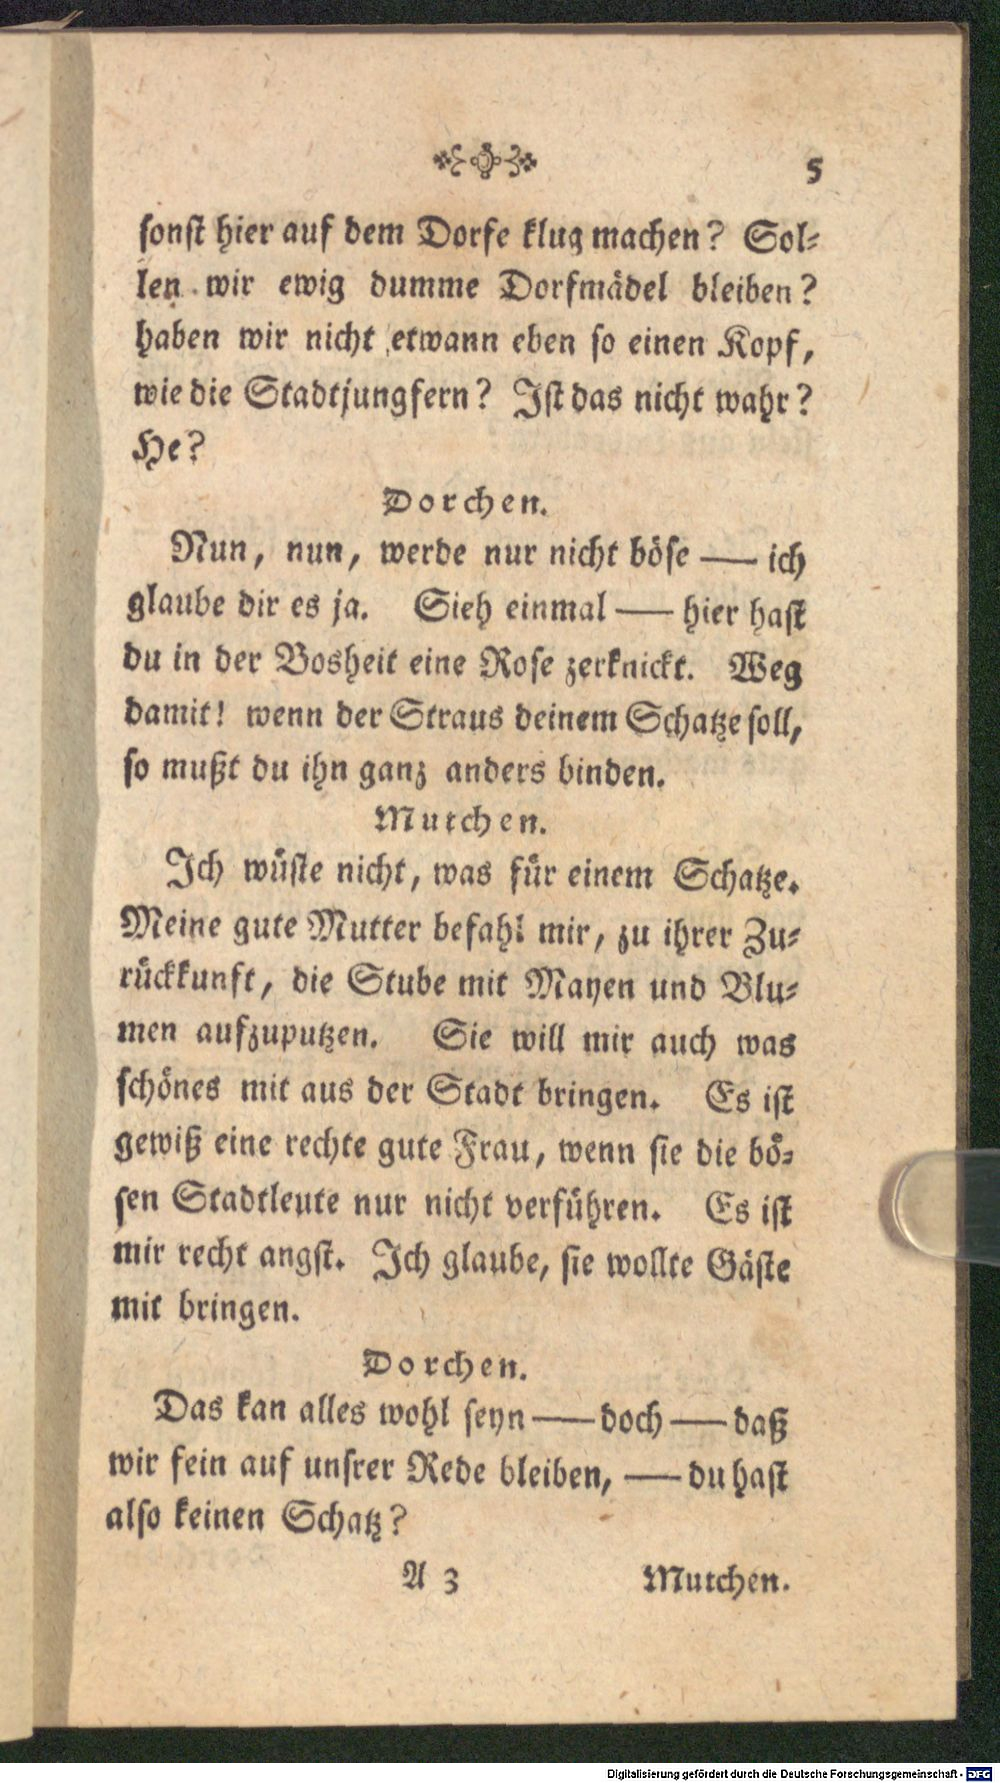 5
sonst hier auf dem Dorfe klug machen? Sol-
len wir ewig dumme Dorfmädel bleiben?
haben wir nicht etwann eben so einen Kopf,
wie die Stadtjungfern? Ist das nicht wahr?
He?
Dorchen.
Nun, nun, werde nur nicht böse — ich
glaube dir es ja. Sieh einmal — hier hast
du in der Bosheit eine Rose zerknickt. Weg
damit! wenn der Straus deinem Schatze soll,
so mußt du ihn ganz anders binden.
Mutchen.
Ich wüste nicht, was für einem Schatze.
Meine gute Mutter befahl mir, zu ihrer Zu-
rückkunft, die Stube mit Mayen und Blu-
men aufzuputzen. Sie will mir auch was
schönes mit aus der Stadt bringen. Es ist
gewiß eine rechte gute Frau, wenn sie die bö-
sen Stadtleute nur nicht verführen. Es ist
mir recht angst. Ich glaube, sie wollte Gäste
mit bringen.
Dorchen.
Das kan alles wohl seyn — doch — daß
wir fein auf unsrer Rede bleiben, — du hast
also keinen Schatz?
A 3 Mutchen.
Digitalisierung gefördert durch die Deutsche Forschungsgemeinschaft - DFG